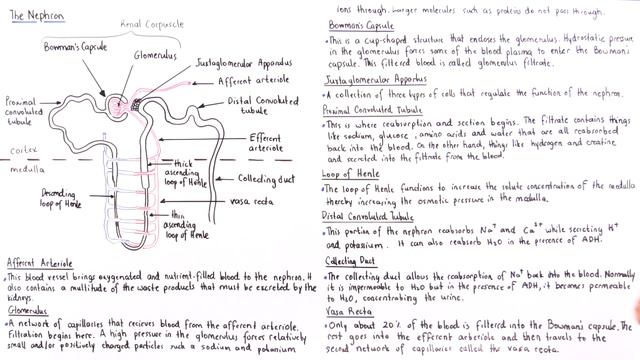 The Nephron
Renal Corpuscle
Bowman's Capsule
Glomerulus
Juxtaglomerular Apparatus
Afferent arteriole
Proximal
convoluted
tubule
Distal Convoluted
tubule
Efferent
arteriole
cortex
medulla
thick
ascending
loop of Henle
Collecting duct
Descending
loop of Henle
vasa recta
thin
ascending
loop of Henle
Afferent Arteriole
•This blood vessel brings oxygenated and nutrient-filled blood to the nephron. It
also contains a multitude of waste products that must be excreted by the
kidneys.
Glomerulus
•A network of capillaries that recieves blood from the afferent arteriole.
Filtration begins here. A high pressure in the glomerulus forces relatively
small and/or positively charged particles such a sodium and potassium
ions through. Larger molecules such as proteins do not pass through.
Bowman's Capsule
•This is a cup-shaped structure that encloses the glomerulus. Hydrostatic pressure
in the glomerulus forces some of the blood plasma to enter the Bowman's
capsule. This filtered blood is called glomerular filtrate.
Juxtaglomerular
•A collection of three types of cells that regulate the function of the nephron.
Proximal Convoluted Tubule
•This is where reabsorption and begins. The filtrate contains things
like sodium, glucose, amino acids and water that are all reabsorbed
back into the blood. On the other hand, things like hydrogen and creatine
and secreted into the filtrate from the blood.
Loop of Henle
•The loop of Henle functions to increase the solute concentration of the medulla
thereby increasing the osmotic pressure in the medulla.
Distal Convoluted Tubule
•This portion of the nephron reabsorbs Na⁺ and Ca²⁺ while secreting H⁺
and potassium. It can also reabsorb H₂O in the presence of ADH.
Collecting Duct
•The collecting duct allows the reabsorption of Na⁺ back into the blood. Normally
it is impermeable to H₂O but in the presence of ADH, it becomes permeable
to H₂O, concentrating the urine.
Vasa Recta
•Only about 20% of the blood is filtered into the Bowman's capsule. The
rest goes into the efferent arteriole and then travels to the
second network of capillaries called the vasa recta.